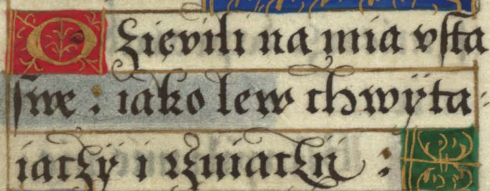 Ozievili na mia vsta
swe : iako lew chwÿta
iaczÿ i rzuiaczÿ :